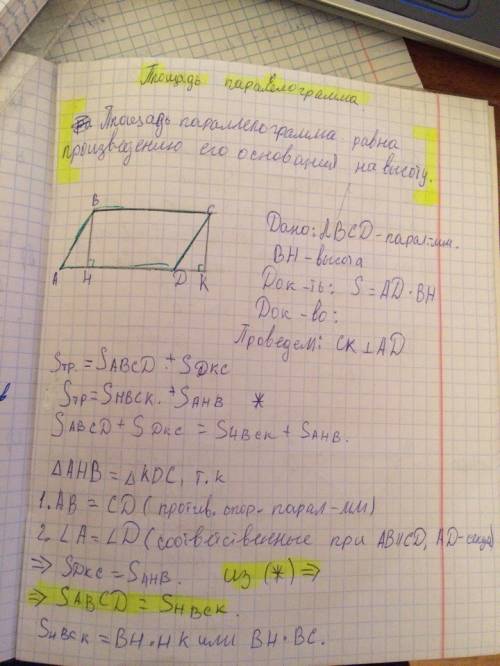 Площадь паралелограмма
Площадь параллелограмма равна
произведению его основания на высоту.
B
C
A
H
D
K
Дано: ABCD - парал-мм.
BH - высота
Док-ть: S = AD · BH
Док-во:
Проведем: CK ⊥ AD
Sтр. = SABCD + SDKC
Sтр = SHBCK + SAHB *
SABCD + SDKC = SHBCK + SAHB.
△AHB = △KDC, т.к
1. AB = CD (против. стор. парал-мм)
2. ∠A = ∠D (соответственные при AB∥CD, AD-секущ)
⇒ SDKC = SAHB. из (*) ⇒
⇒ SABCD = SHBCK.
SHBCK = BH · HK или BH · BC.